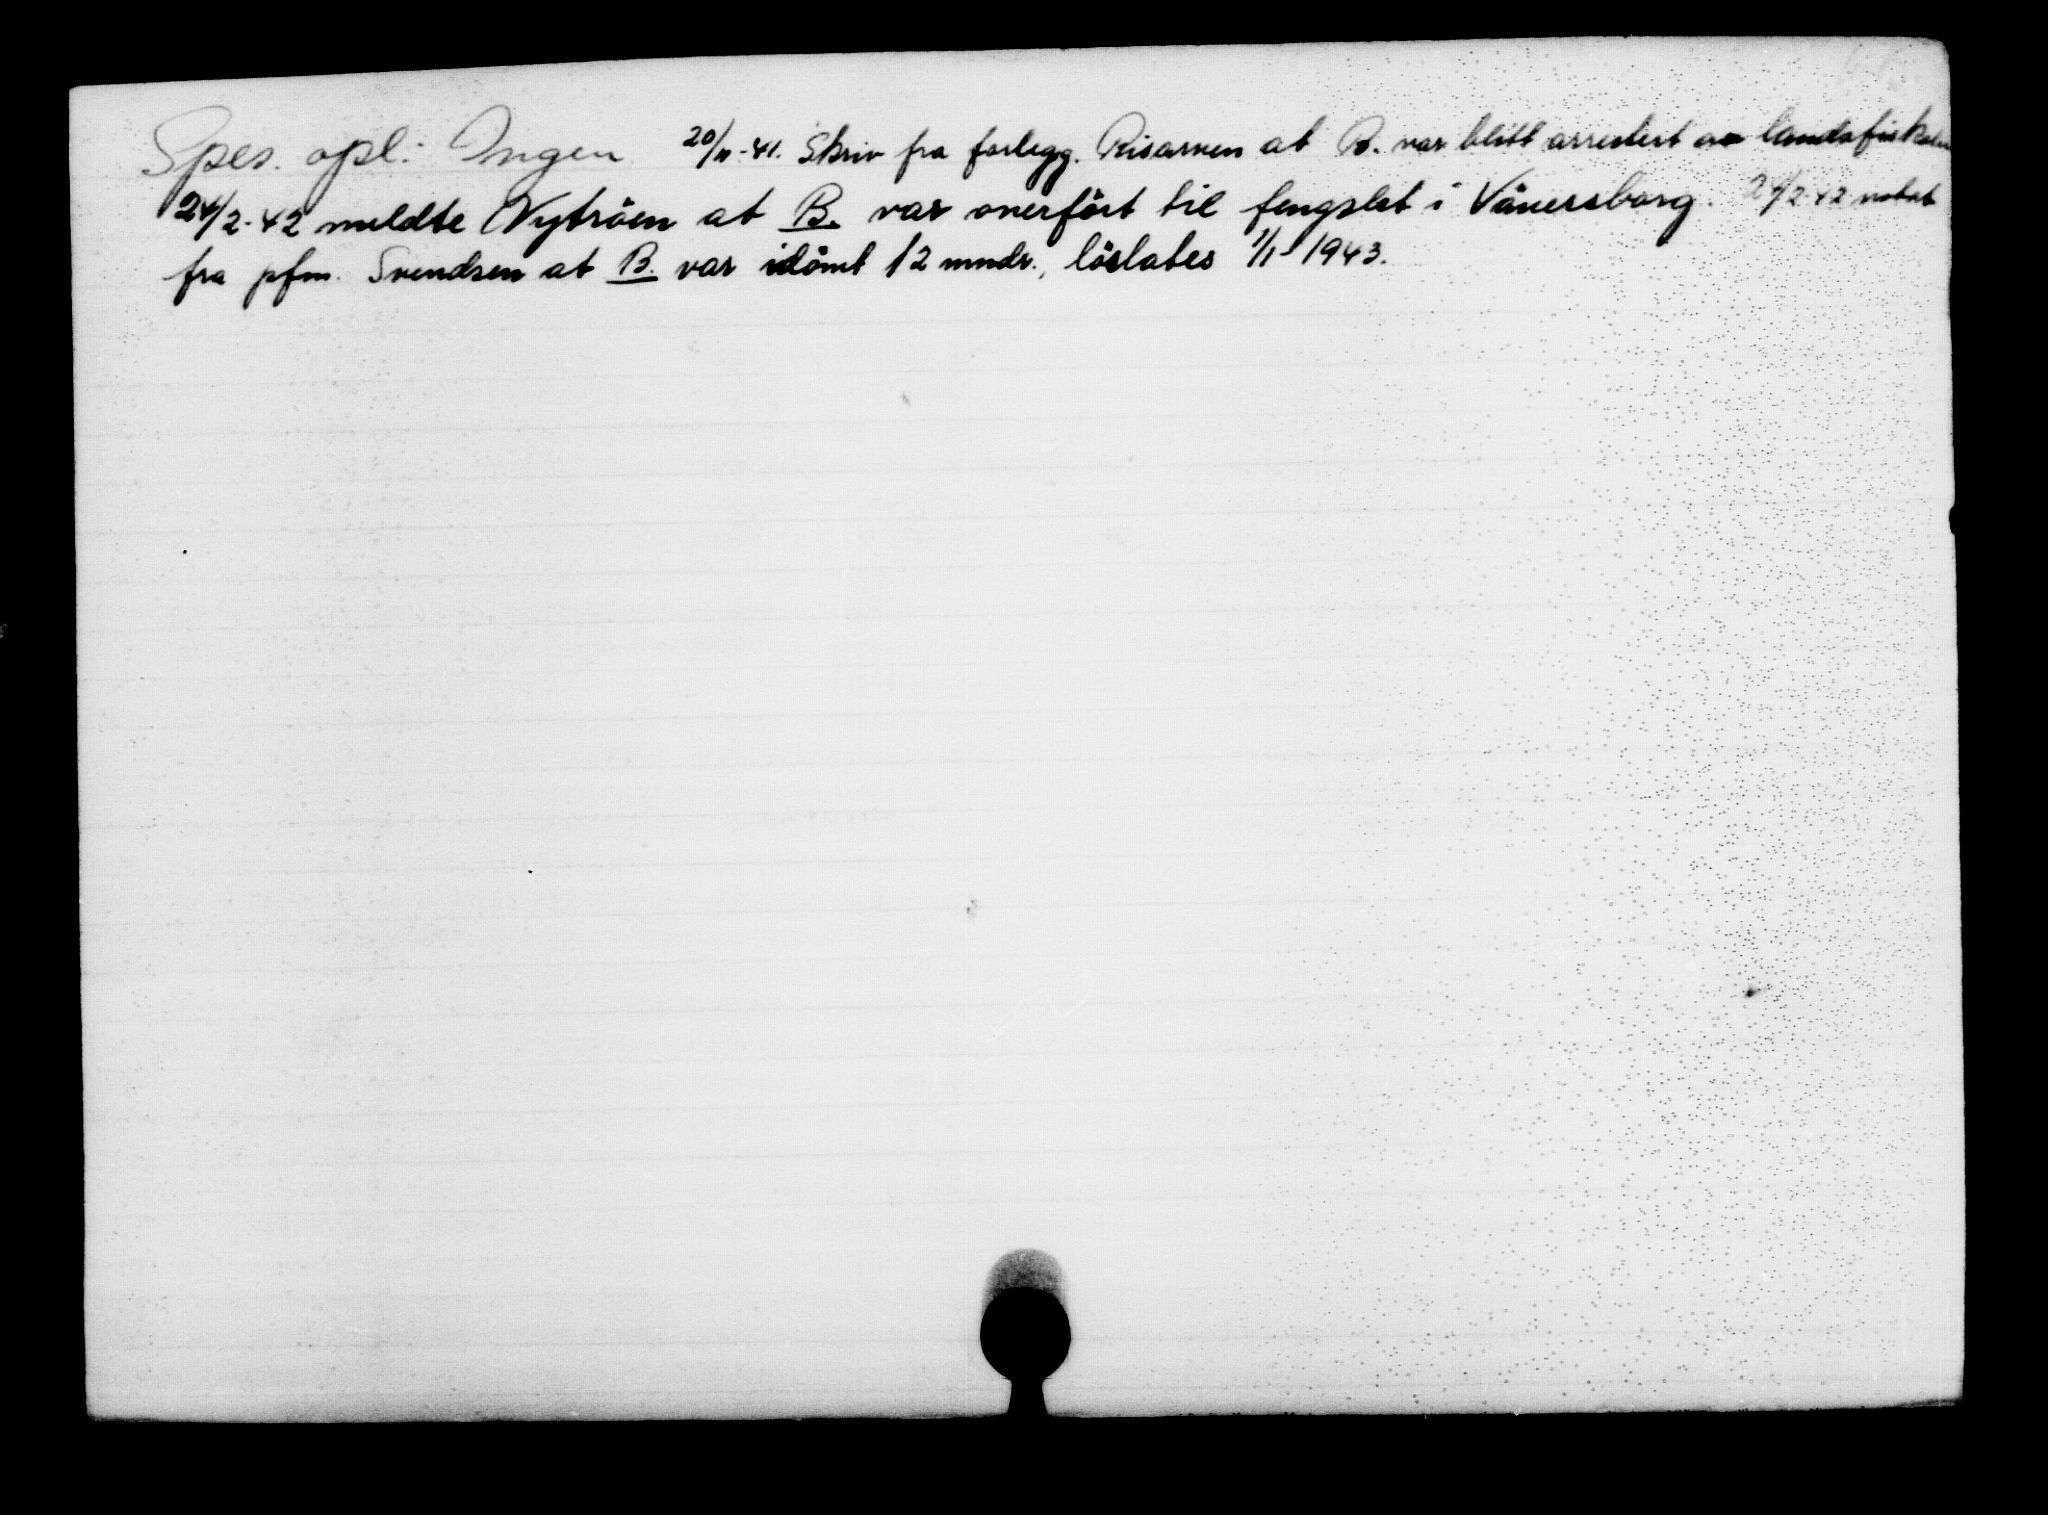 Spes. opl.: Ingen 20/11-41. Skriv fra forlegg. Risarven at B. var blitt arrestert av landsfiskalen
24/2-42 meldte Nytröen at B. var overfört til fengslet i Vänersborg. 24/2-42 notat
fra pfm. Svendsen at B. var idömt 12 mndr., löslates 1/1-1943.